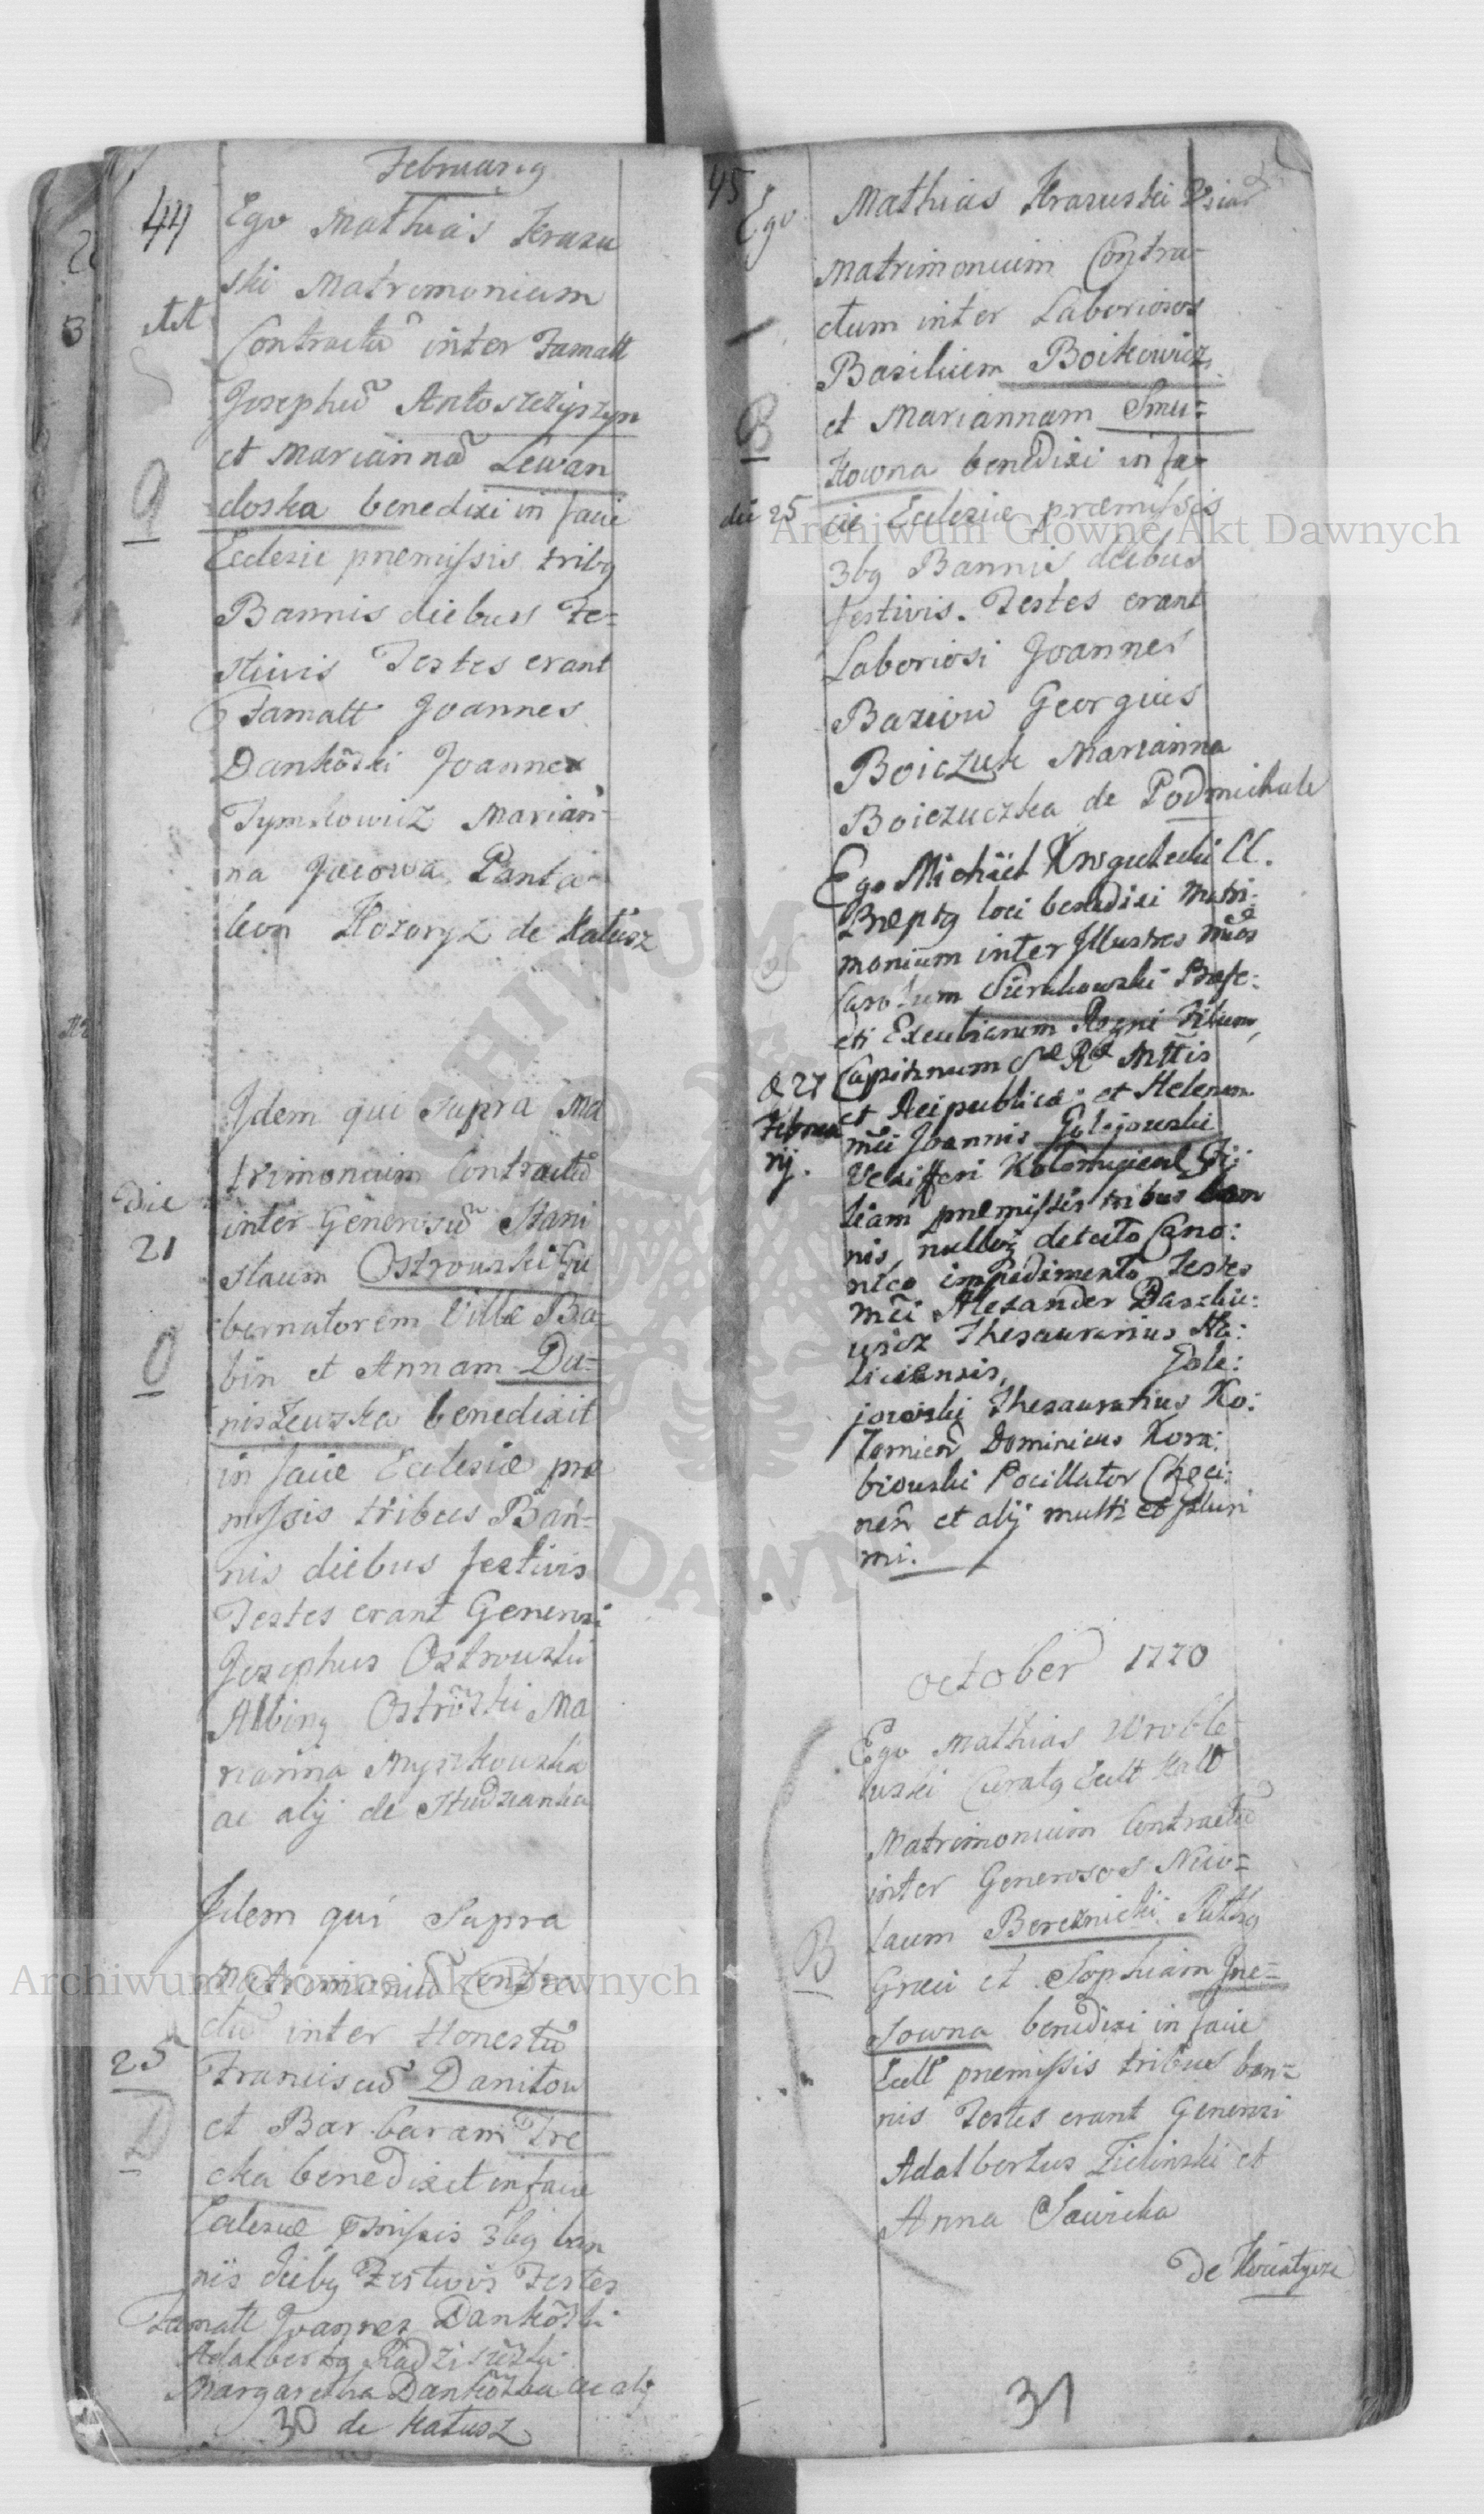 Februarg
44
Ego Mathias Krasu
ski Matrimonium
Contractũ inter Famatt
Josephũ Antoszczyszyn
et Mariannã Lewan
doska benedixi in facie
Eclesie premissis tribg
Bannis diebus Fe=
stivis Testes erant
Famatt Joannes
Dankõski Joannes
Tymkowicz Marian-
na Jucowa Panta-
leon Kozoryz de Kałusz
Idem qui supra Ma
trimonium Contractũ
Die
21
inter Generosũ Stani
slaum Ostrowski Gu
bernatorem Villæ Ba=
bin et Annam Du=
niszewska benedixit
in facie Eclesiæ præ
missis tribus Ban=
nis diebus festivis
Testes erant Generosi
Josephus Ostrowski
Albing Ostrõski Ma
rianna Myszkowska
ac alij de Studzianka
Idem qui Supra
Matrimoniũ Contra
ctũ inter Honestũ
25
Franciscũ Daniłow
et Barbaram Tre
cka benedixit in facie
Eclesiæ pmissis 3bg ban
nis diebg Festivis Testes
Famatt Joannes Dankõski
Adalbertg Radziszewski
Margaretha Dankõska ac alij
30 de Kałusz
45
Ego Mathias Krasuski
Matrimonium Contra-
ctum inter Laboriosos
Basilium Boikowicz
B
et Mariannam Smu=
Kowna benedixi in fa-
die 25
cie Eclesiæ præmissis
3bg Bannis diebus
festivis. Testes erant
Laboriosi Joannes
Baziow Georgius
Boiczuk Marianna
Boiczuczka de Podmichale
Ego Michæl
Præptg loci benedixi matri-
monium inter Illustres
Carolum Sierakowski Præfe:
cti Excubiarum Regni Filium,
Capitaneum Sæ Ræ Mttis
et Reipublicæ et Helenam
D 27
Februa
rij.
Joannis Golejowski
Vexifferi Fi
liam præmissis tribus ban
nis, nulloq detecto Cano:
nico impedimento Testes
Alexander Daszkie:
wicz Thesaurarius Ha:
liciensis, Gole:
jowski Thesaurarius
Dominicus Kora:
biowski Pocillator
et alij multi et pluri
mi.
October 1770
Ego Mathias Wroble-
wski Curatg Eccll
Matrimonium Contractũ
inter Generosos Nico=
B
laum Bereznicki
Græci et Sophiam
Sowna benedixi in facie
Eccll premissis tribus ban=
nis Testes erant Generosi
Adalbertus Zielinski et
Anna Sawicka
31